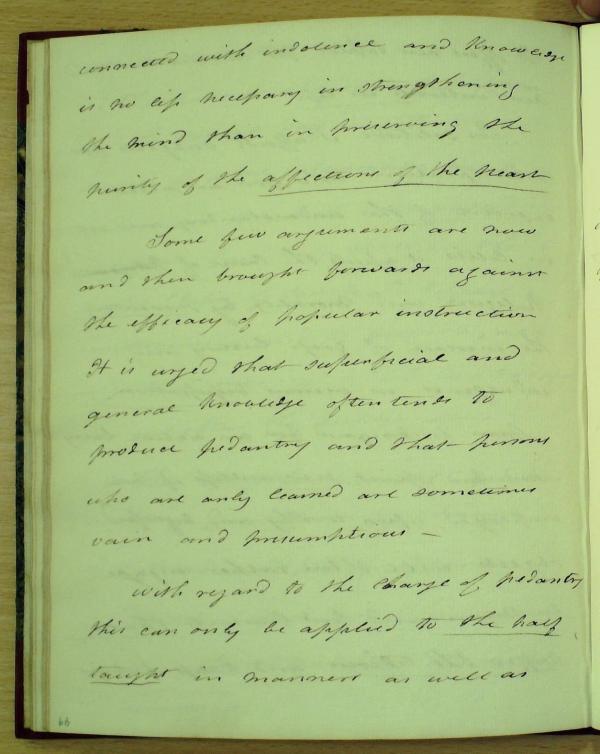 connected with indolence and Knowledge
is no less necessary in strengthening
the mind than in preserving the
purity of the affections of the heart
Some few arguments are now
and then brought forwards against
the efficacy of popular instruction
It is urged that superficial and
general Knowledge often tends to
produce pedantry and that persons
who are only learned are sometimes
vain and presumptious —
With regard to the charge of pedantry
this can only be applied to the half
taught in manners as well as